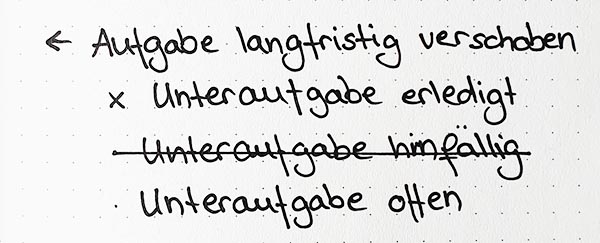 ← Aufgabe langfristig verschoben
x Unteraufgabe erledigt
· Unteraufgabe hinfällig
· Unteraufgabe offen